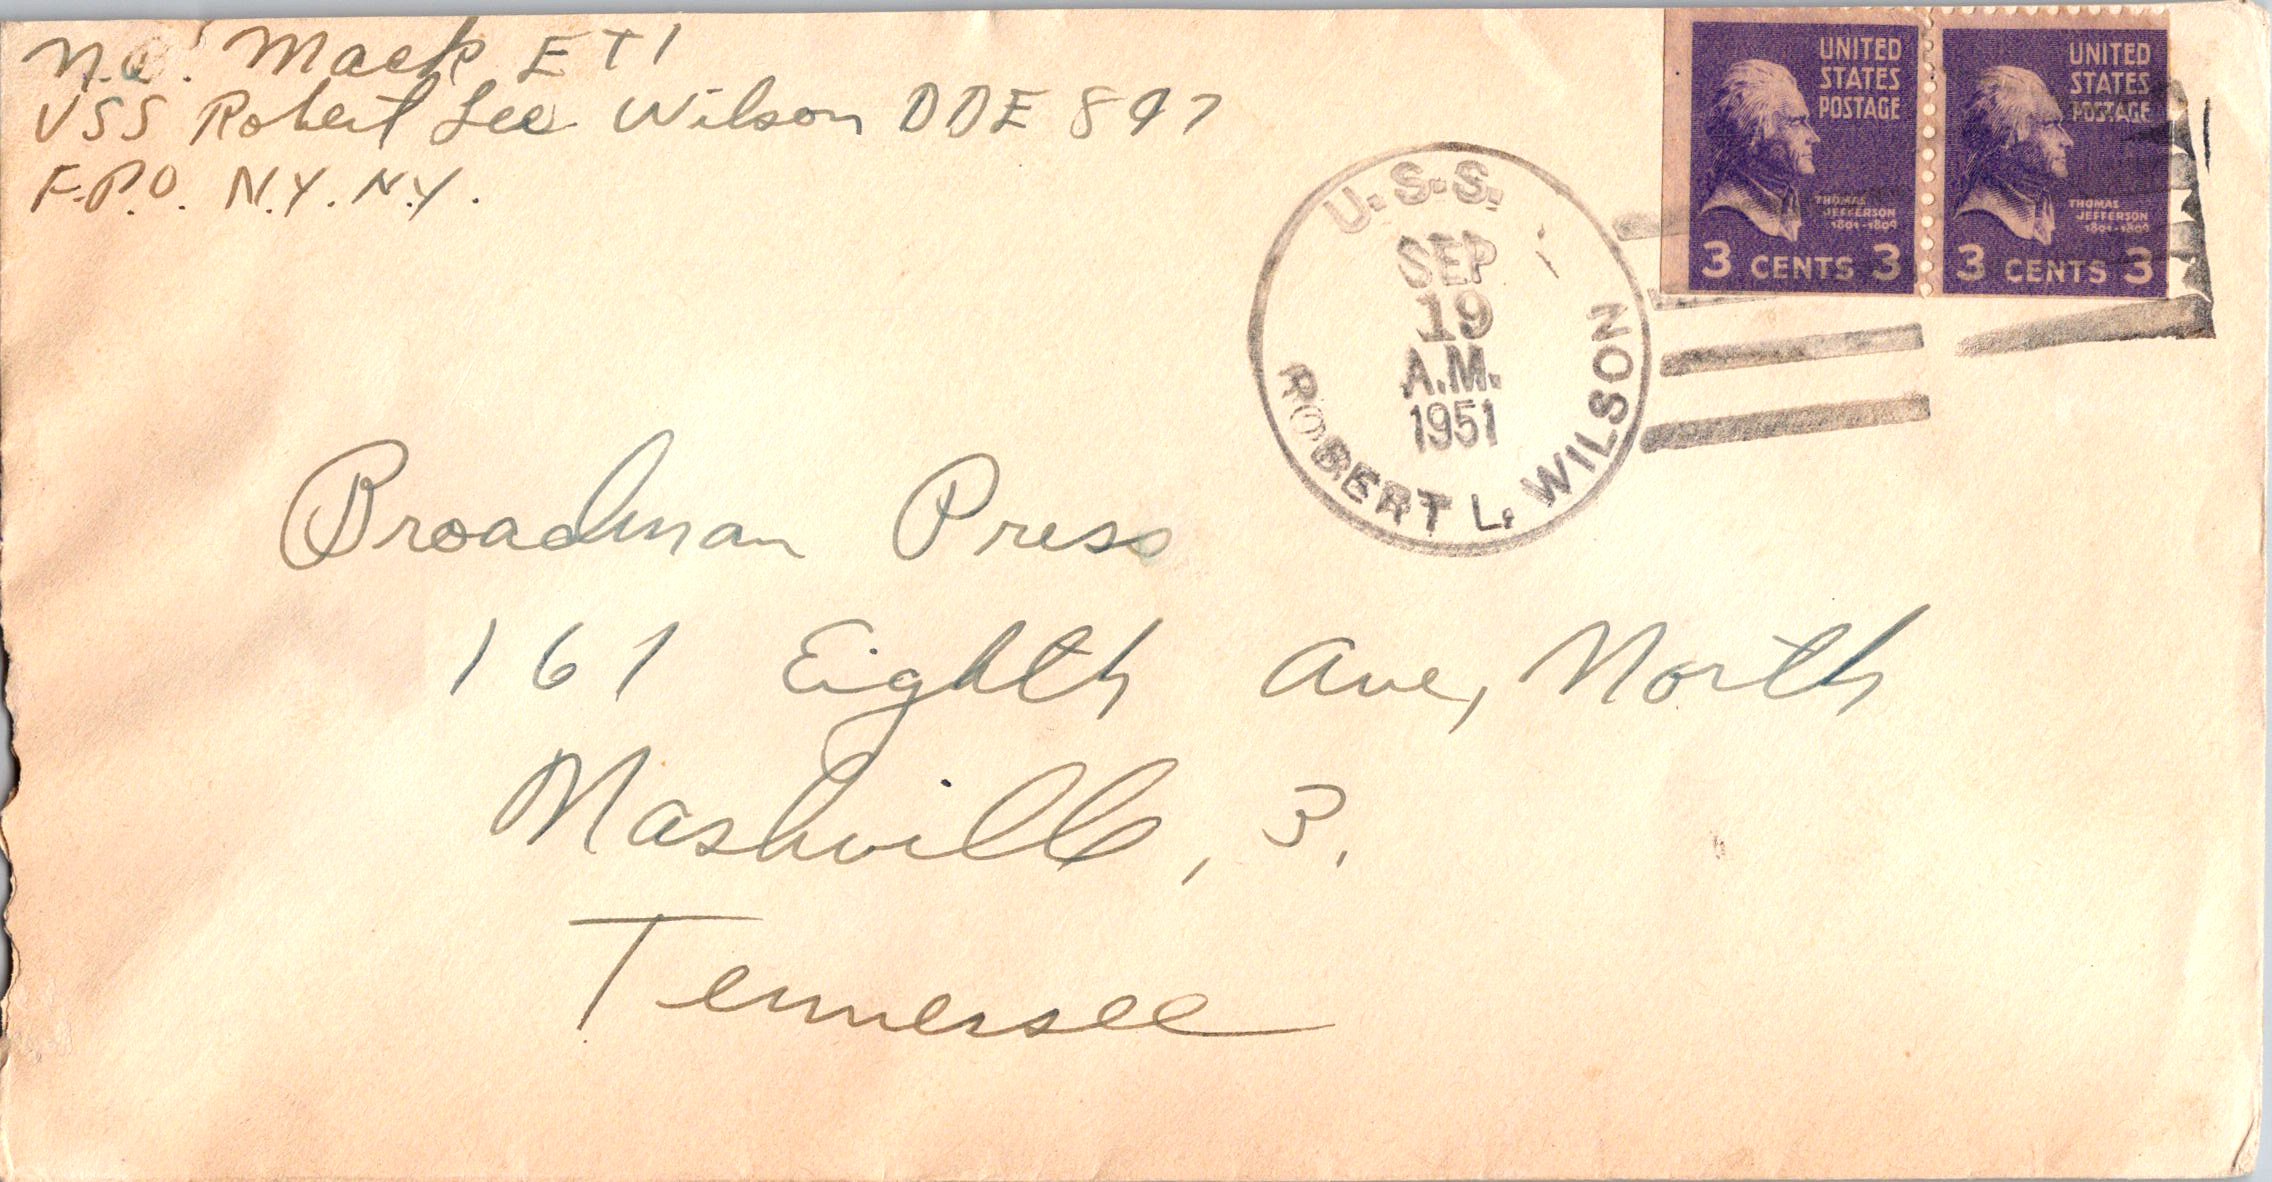 N.C. Mack ET1
USS Robert Lee Wilson DDE 847
F.P.O. N.Y. N.Y.
U.S.S.
SEP
19
A.M.
1951
ROBERT L. WILSON
UNITED
STATES
POSTAGE
THOMAS
JEFFERSON
1801-1809
3 CENTS 3
UNITED
STATES
POSTAGE
THOMAS
JEFFERSON
1801-1809
3 CENTS 3
Broadman Press
161 Eighth Ave, North
Nashville, 3.
Tennessee